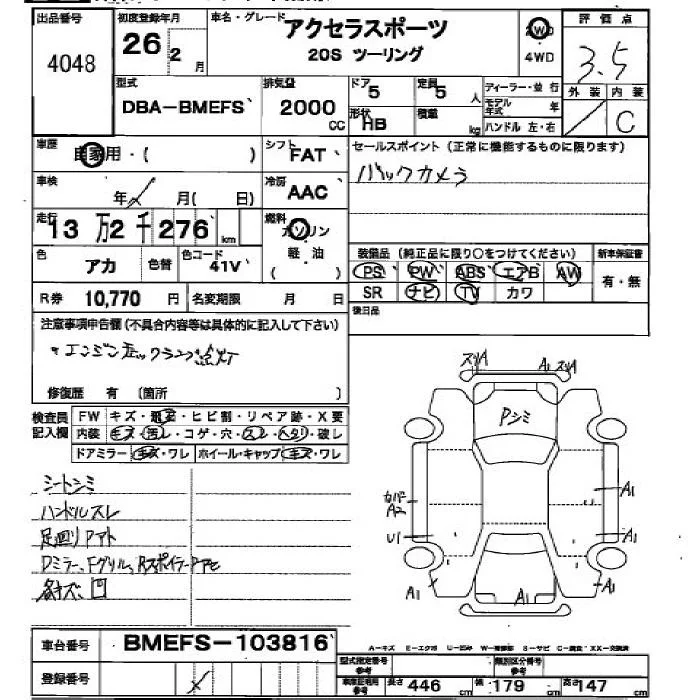 出品番号
4048
初度登録年月
26 年 2 月
車名・グレード
アクセラスポーツ
20S ツーリング
2WD
4WD
評価点
3.5
外装 内装
C
型式
DBA-BMEFS
排気量
2000 CC
ドア 5
定員 5 人
形状 HB
積載 kg
ディーラー・並行
モデル年式 年
ハンドル 左・右
車歴
自家用・( )
シフト
FAT
セールスポイント (正常に機能するものに限ります)
バックカメラ
車検
年 月( 日)
冷房
AAC
走行
13 万 2 千 276 km
燃料
ガソリン
軽・油
( )
色
アカ
色替
色コード
41V
装備品 (純正品に限り○をつけてください)
新車保証書
PS PW ABS エアB AW
有・無
SR ナビ TV カワ
R券 10,770 円
名変期限 月 日
後日品
注意事項申告欄(不具合内容等は具体的に記入して下さい)
エンジンチェックランプ点灯
修復歴 有 (箇所 )
検査員記入欄
FW キズ・飛石・ヒビ割・リペア跡・X要
内装 キズ・汚レ・コゲ・穴・スレ・ヘタリ・破レ
ドアミラー キズ・ワレ ホイール・キャップ キズ・ワレ
シートシミ
ハンドルスレ
足廻リ
Dミラー、Fグリル、Rスポイラー
スリA A1 スリA
Pシミ
カバー A2
A1
U1
A1
A1
A1
A1
車台番号
BMEFS-103816
登録番号
A-キズ E-エクボ U-凹み W-補修跡 S-サビ C-腐食 XX-交換済
型式指定番号 参考
類別区分番号 参考
車庫証明用 参考
長さ 446 cm
幅 179 cm
高さ 147 cm